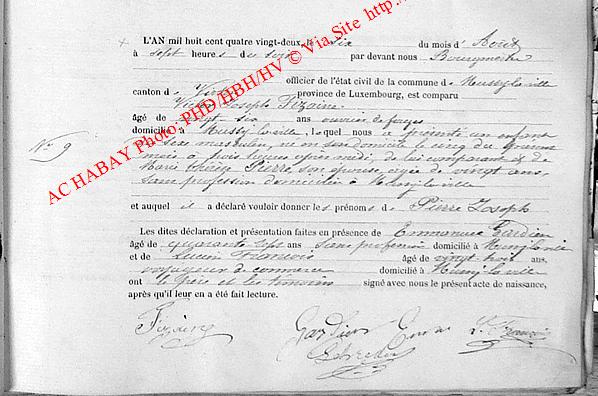 L'AN mil huit cent quatre vingt-deux, le dix du mois d'Août
à sept heures du soir par devant nous Bourgmestre
officier de l'état civil de la commune de Mussy la ville
canton de Virton province de Luxembourg, est comparu
Victor Joseph Fizaine
âgé de vingt six ans ouvrier de forges
domicilié à Mussy la ville, lequel nous a présenté un enfant
N° 9
de sexe masculin, né en son domicile le cinq du présent
mois à trois heures après midi, de lui comparant & de
Marie Thérèse Pierre, son épouse, âgée de vingt ans,
sans profession domiciliée à Mussy la ville
et auquel il a déclaré vouloir donner les prénoms de Pierre Joseph
Les dites déclaration et présentation faites en présence de Emmanuel Gardien
âgé de quarante sept ans sans profession domicilié à Mussy la ville
et de Lucien François âgé de vingt trois ans,
voyageur de commerce domicilié à Mussy la ville
ont le père et les témoins signé avec nous le présent acte de naissance,
après qu'il leur en a été fait lecture.
Fizaine Gardien L. François
AC HABAY Photo. PHD/HBH/HV © Via Site http:/